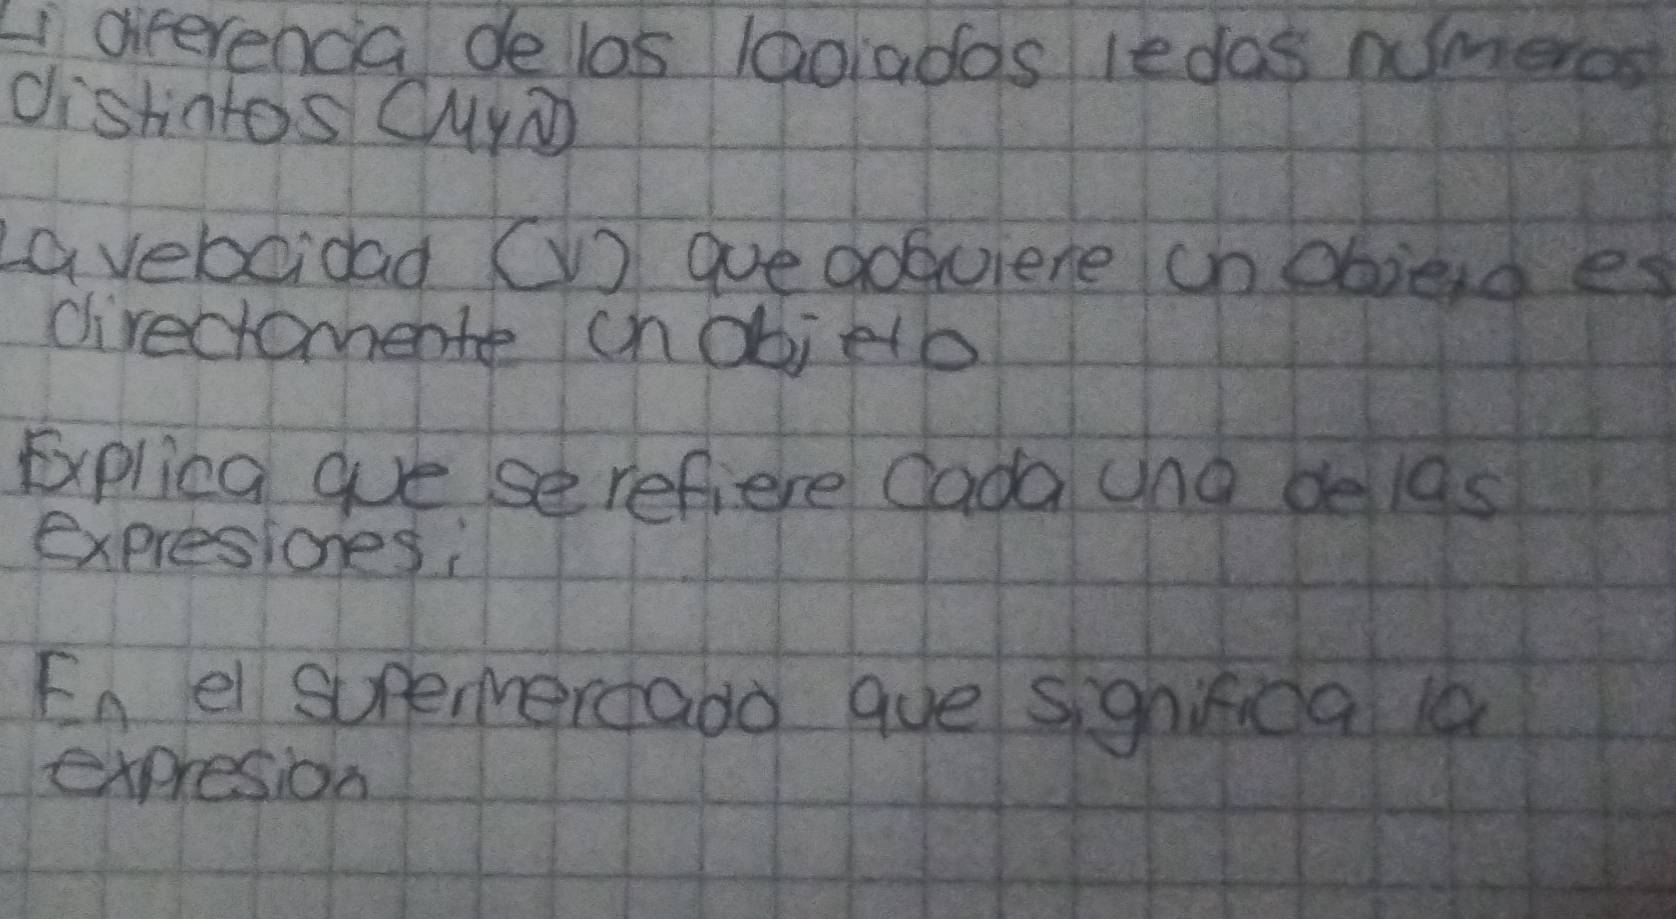 Li diferencia de los laoiados ledas numeros
distintos (M y N)
La velocidad (V) que adquiere un objeto es
directamente un objeto
Explica que se refiere cada una de las
expresiones:
En el supermercado que significa la
expresion